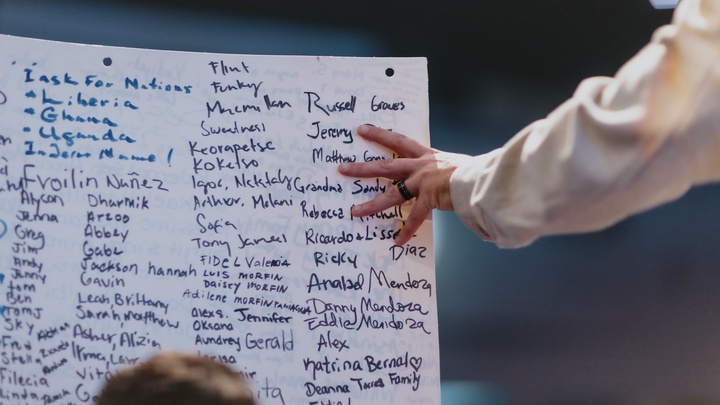 I ask For Nations
*Liberia
*Ghana
*Uganda
In Jesus Name!
Evoilin Nuñez
Alycon
Jenna
Greg
Jim
Andy
Jenny
Tom
Ben
Sky
Fred
Stella
Filecia
Linda
Dharmik
Arzoo
Abbey
Gabe
Jackson hannah
Gavin
Leah, Brittany
Sarah, matthew
Asher, Alizia
Flint
Funky
Macmillan
Sweetnesi
Keorapetse
Kokelso
Igor, Natataly
Arthur, Melani
Sofia
Tony Samuel
FIDEL Valencia
LUIS MORFIN
DAISEY MORFIN
Adilene MORFIN
alexs. Jennifer
Oksana
Aundrey Gerald
Russell Graves
Jeremy
Matthew
Grandma Sandy
Rebecca Mitchell
Ricardo & Lisse
Ricky Diaz
Anabel Mendoza
Danny Mendoza
Eddie Mendoza
Alex
Katrina Bernal♡
Deanna Torres Family